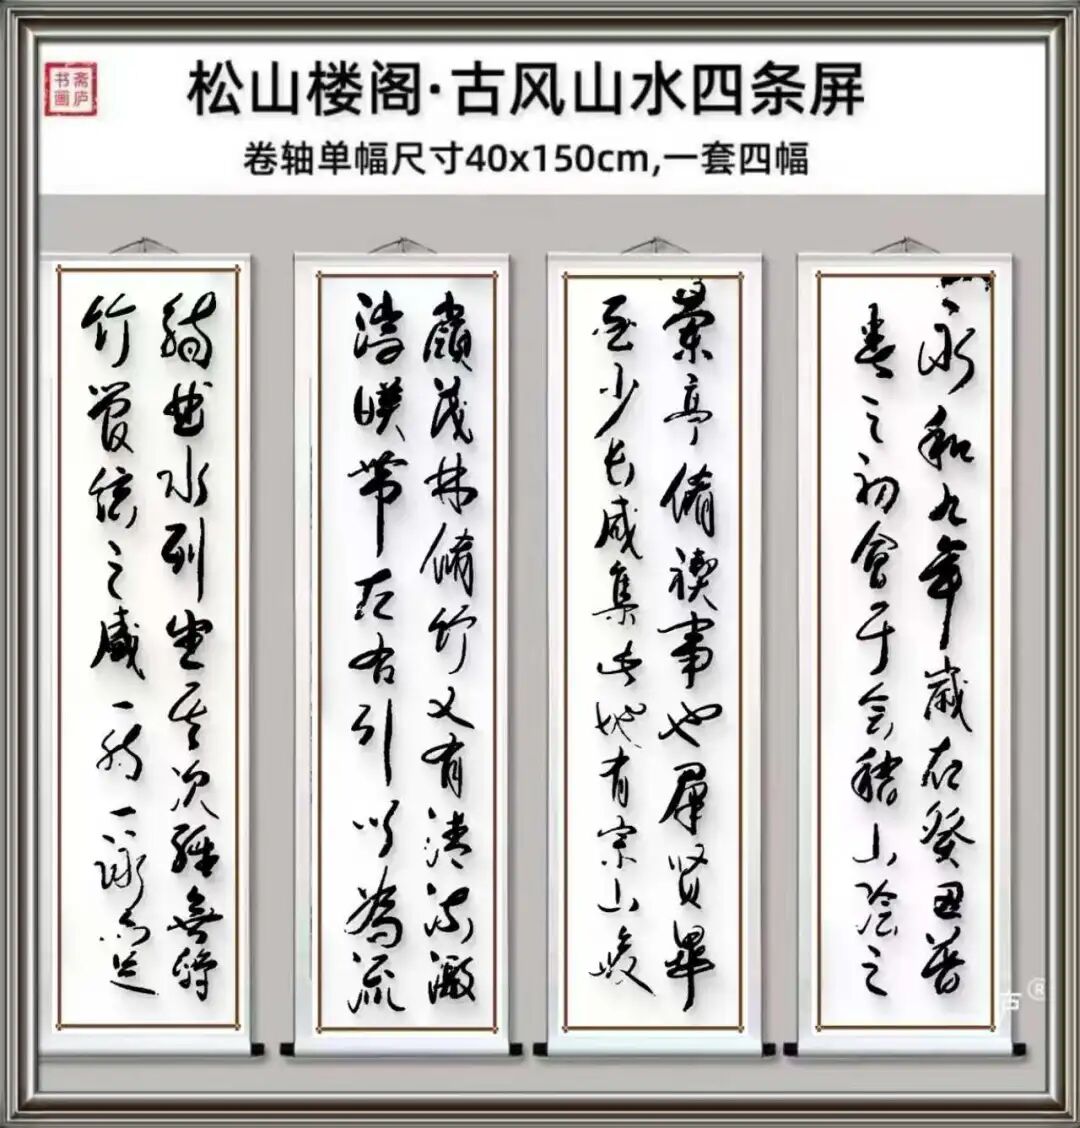 斋庐
书画
松山楼阁·古风山水四条屏
卷轴单幅尺寸40x150cm,一套四幅
永和九年歲在癸丑暮
春之初會于会稽山陰之
蘭亭脩禊事也羣賢畢
至少長咸集此地有崇山峻
嶺茂林脩竹又有清流激
湍暎帶左右引以為流
觴曲水列坐其次雖無絲
竹管弦之盛一觴一詠亦足
古®